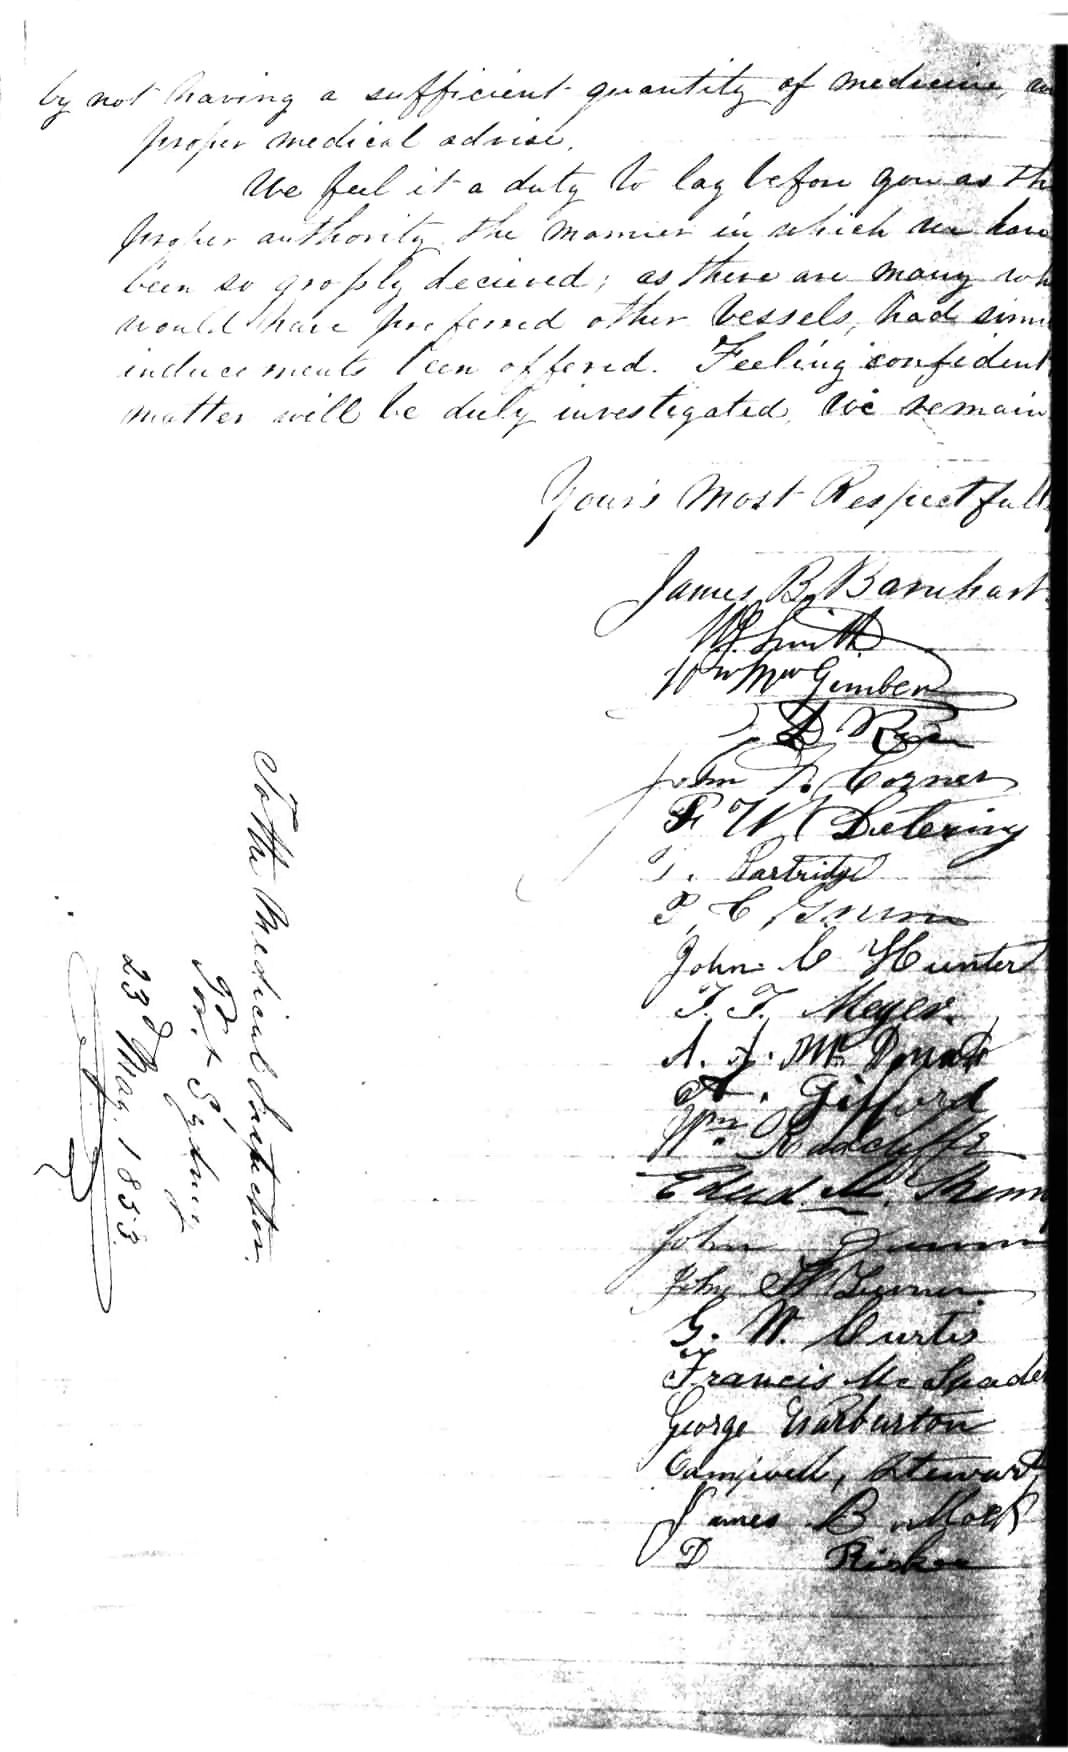 by not having a sufficient quantity of medicine,
proper medical advise.
We feel it a duty to lay before you as th
proper authority the manner in which we have
been so grossly decieved; as there are many wh
would have preferred other vessels, had simi
inducements been offered. Feeling confident
matter will be duly investigated, We remain
Your's Most Respectfull
James B. Barnhart
W. J. Smith
Gimber
D
John Corner
F W Detering
Partridge
P. C.
John C Hunter
T. T. Meyer.
A. J. Mc
A. Gifford
Wm Radclyffe
Edwd. M.
John
John Turner
G. W. Curtis
Francis Mc Spade
George Warburton
Stewart
James B
D
To the Medical Inspector.
Port Sydney
23d May. 1853.